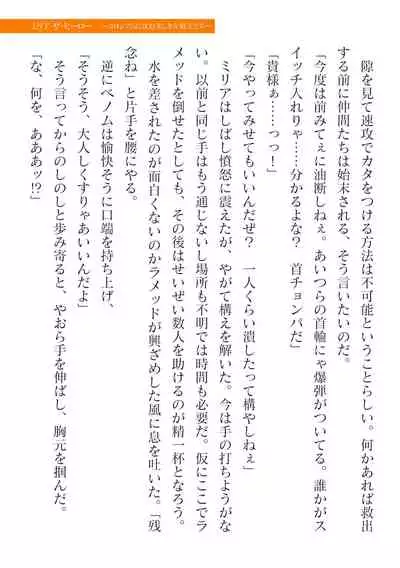 ミリア・ザ・ヒーロー
隙を見て速攻でカタをつける方法は不可能ということらしい。何かあれば救出
する前に仲間たちは始末される、そう言いたいのだ。
「今度は前みてぇに油断しねぇ。あいつらの首輪にゃ爆弾がついてる。誰かがス
イッチ入れりゃ……分かるよな? 首チョンパだ」
「貴様ぁ……っっ!」
「今やってみせてもいいんだぜ? 一人くらい潰したって構やしねぇ」
ミリアはしばし憤怒に震えたが、やがて構えを解いた。今は手の打ちようがな
い。以前と同じ手はもう通じないし場所も不明では時間も必要だ。仮にここでラ
メッドを倒せたとしても、その後はせいぜい数人を助けるのが精一杯となろう。
水を差されたのが面白くないのかラメッドが興ざめした風に息を吐いた。「残
念ね」と片手を腰にやる。
逆にベノムは愉快そうに口端を持ち上げ、
「そうそう、大人しくすりゃあいいんだよ」
そう言ってからのしのしと歩み寄ると、やおら手を伸ばし、胸元を掴んだ。
「な、何を、あああッ!?」